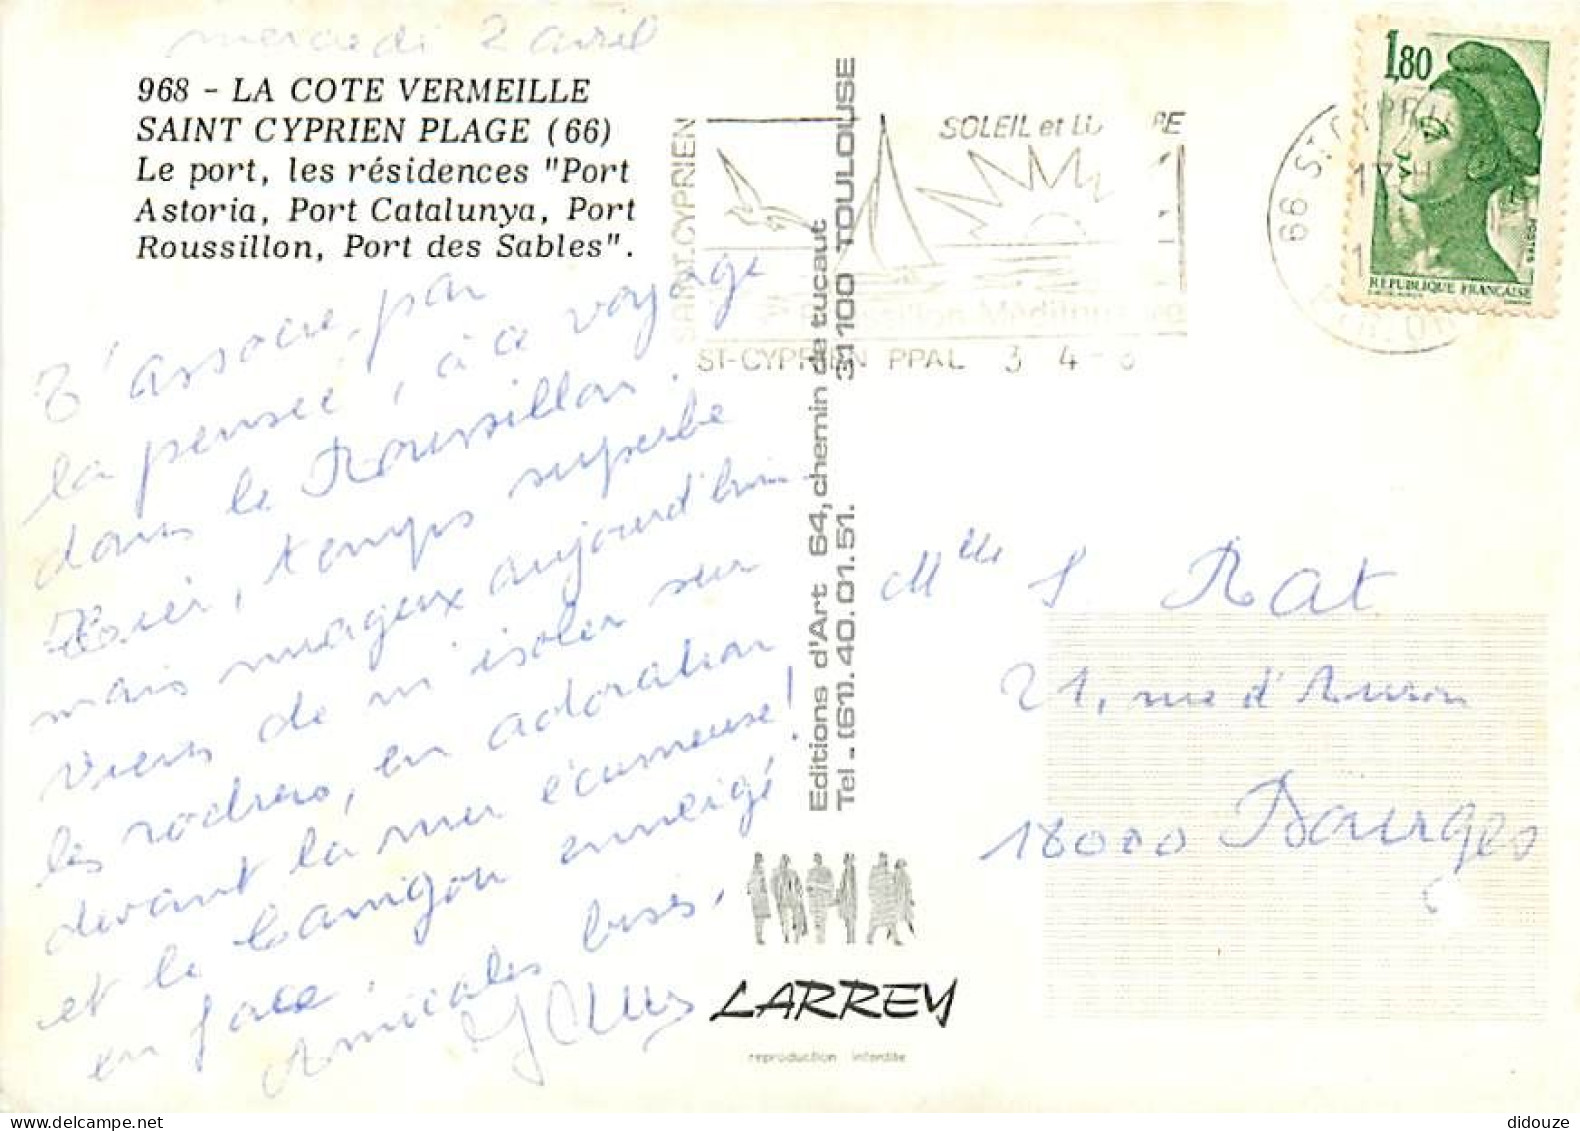 mercredi 2 avril
968 - LA COTE VERMEILLE
SAINT CYPRIEN PLAGE (66)
Le port, les résidences "Port
Astoria, Port Catalunya, Port
Roussillon, Port des Sables".
T'associe, par
la pensée, à ce voyage
dans le Roussillon.
Hier, temps superbe
mais nuageux aujourd'hui.
Viens de m'isoler sur
les rochers, en adoration
devant la mer écumeuse!
et le Canigou enneigé
en face.
Amicales bises,
Editions d'Art 64, chemin de tucaut 31100 TOULOUSE
Tel - (61). 40. 01. 51.
SAINT.CYPRIEN
SOLEIL et
ST-CYPRIEN PPAL 3 4 -
66 ST CYPRIEN
17 H
1,80
POSTES
REPUBLIQUE FRANÇAISE
Mlle S Rat
21, rue d'Auron
18000 Bourges
LARREY
reproduction interdite
didouze